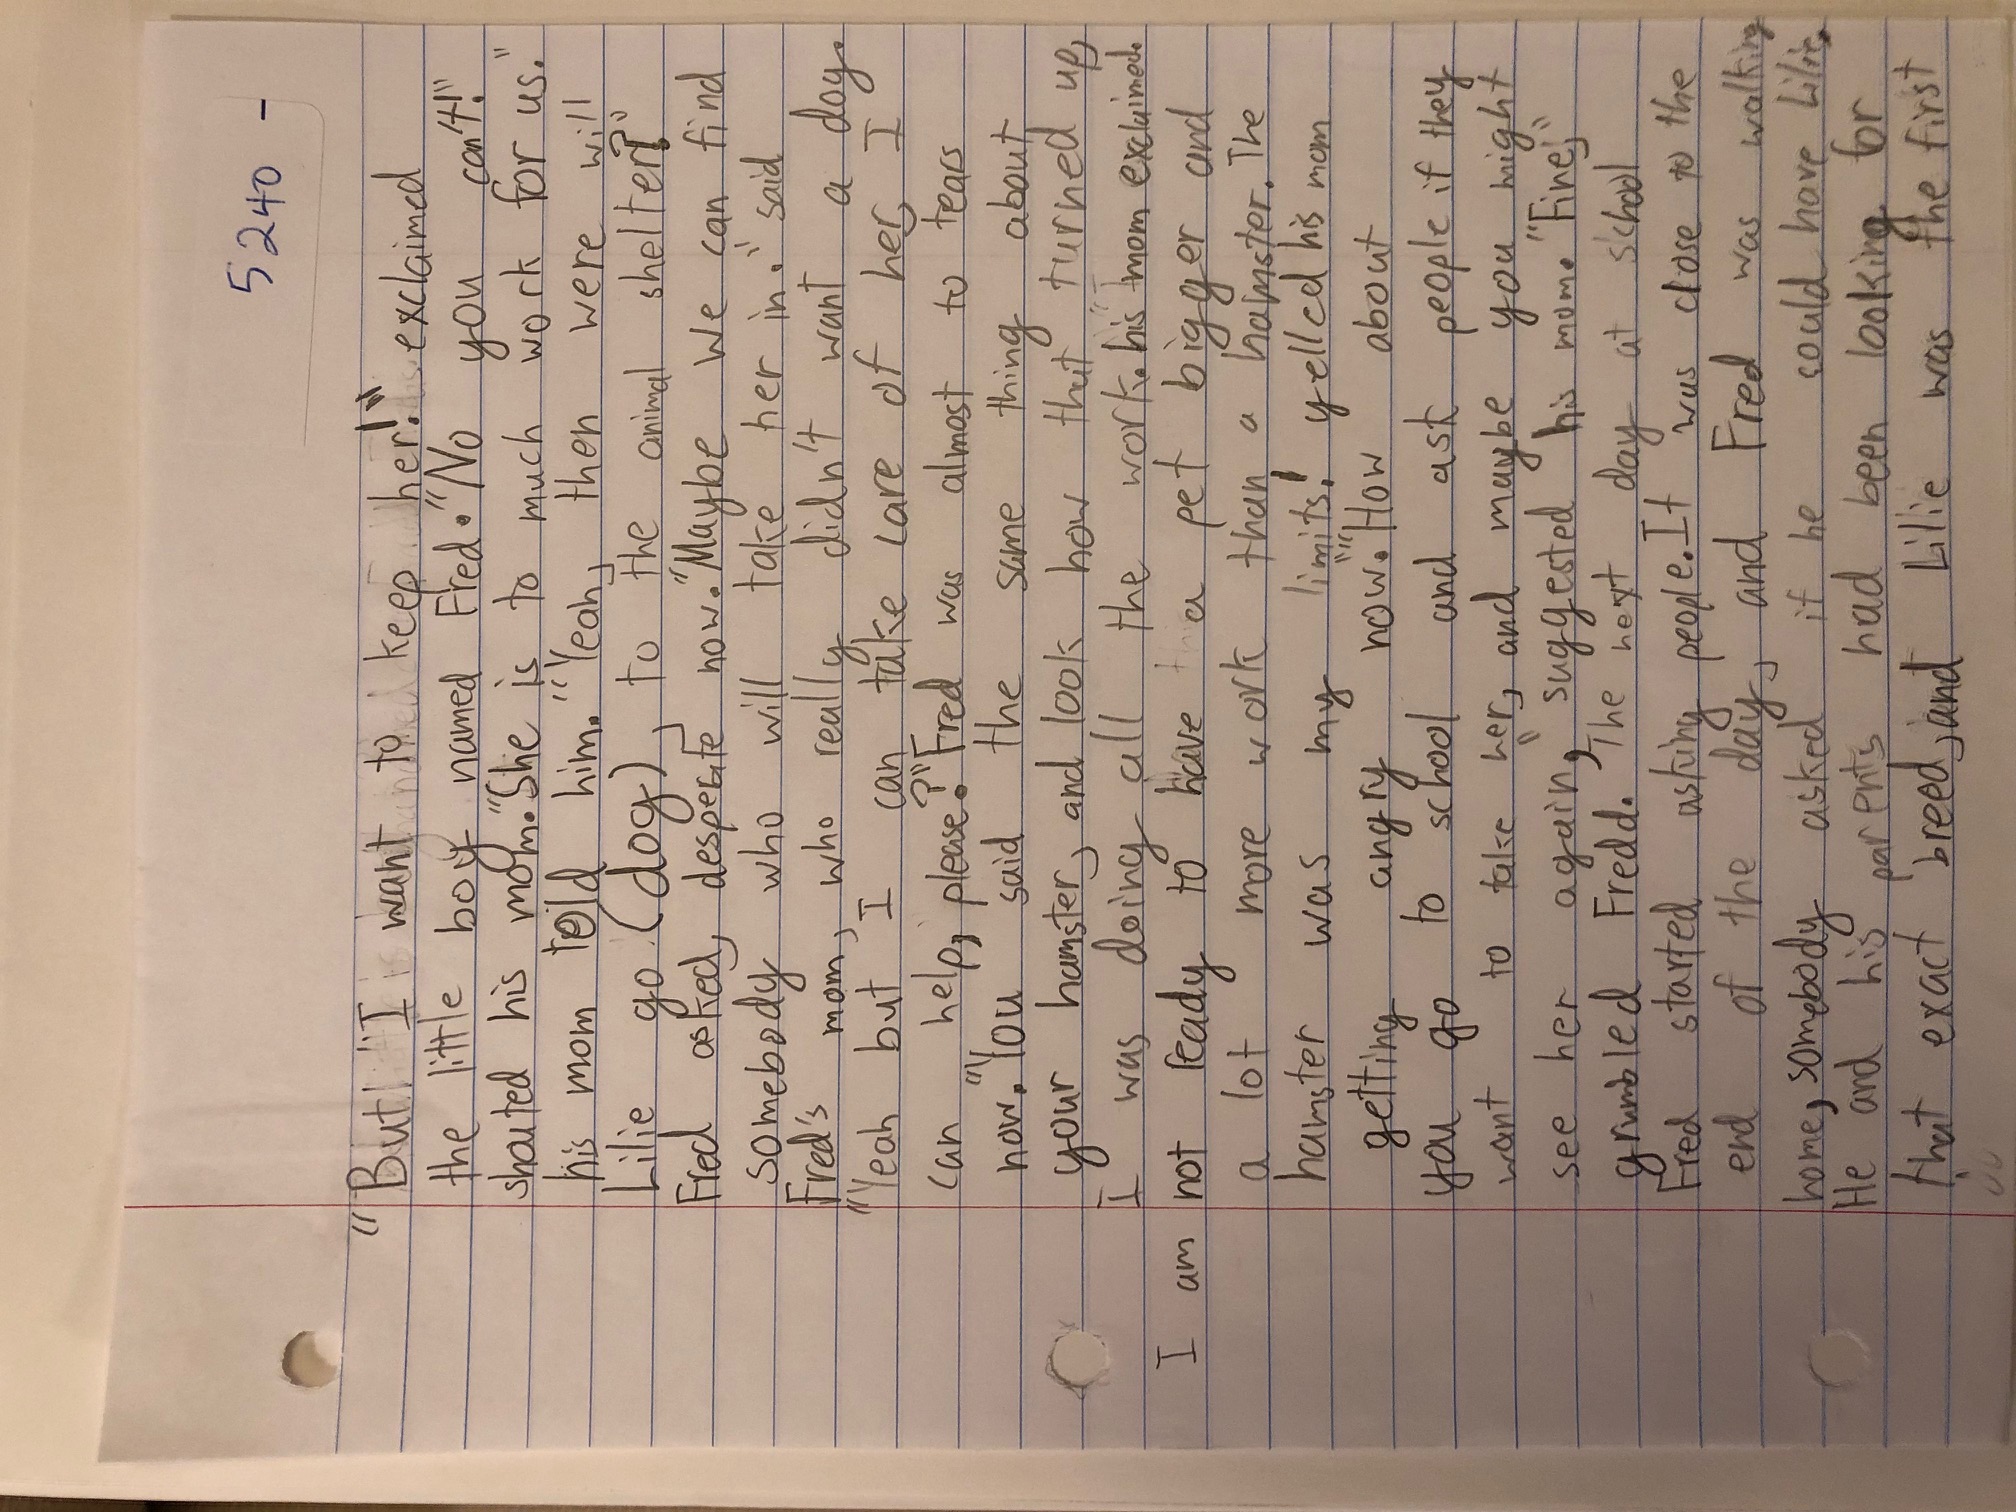 5240 -
"But! "I want to keep her!" exclaimed
the little boy named Fred. "No you can't!"
shouted his mom. "She is to much work for us."
his mom told him. "Yeah, then were will
Lilie go (dog), to the animal shelter?"
Fred asked, desperate now. "Maybe we can find
somebody who will take her in." said
Fred's mom, who really didn't want a dog.
"Yeah but I can take care of her, I
can help, please?" Fred was almost to tears
now. "You said the same thing about
your hamster, and look how that turned up,
I was doing all the work. his "mom exclaimed.
I am not ready to have a pet bigger and
a lot more work than a hamster. The
hamster was my limits! yelled his mom
getting angry now.""How about
you go to school and ask people if they
want to take her, and maybe you might
see her again," suggested his mom. "Fine,"
grumbled Fredd. The next day at school
Fred started asking people. It was close to the
end of the day, and Fred was walking
home, somebody asked if he could have Lilie.
He and his parents had been looking for
that exact breed, and Lilie was the first